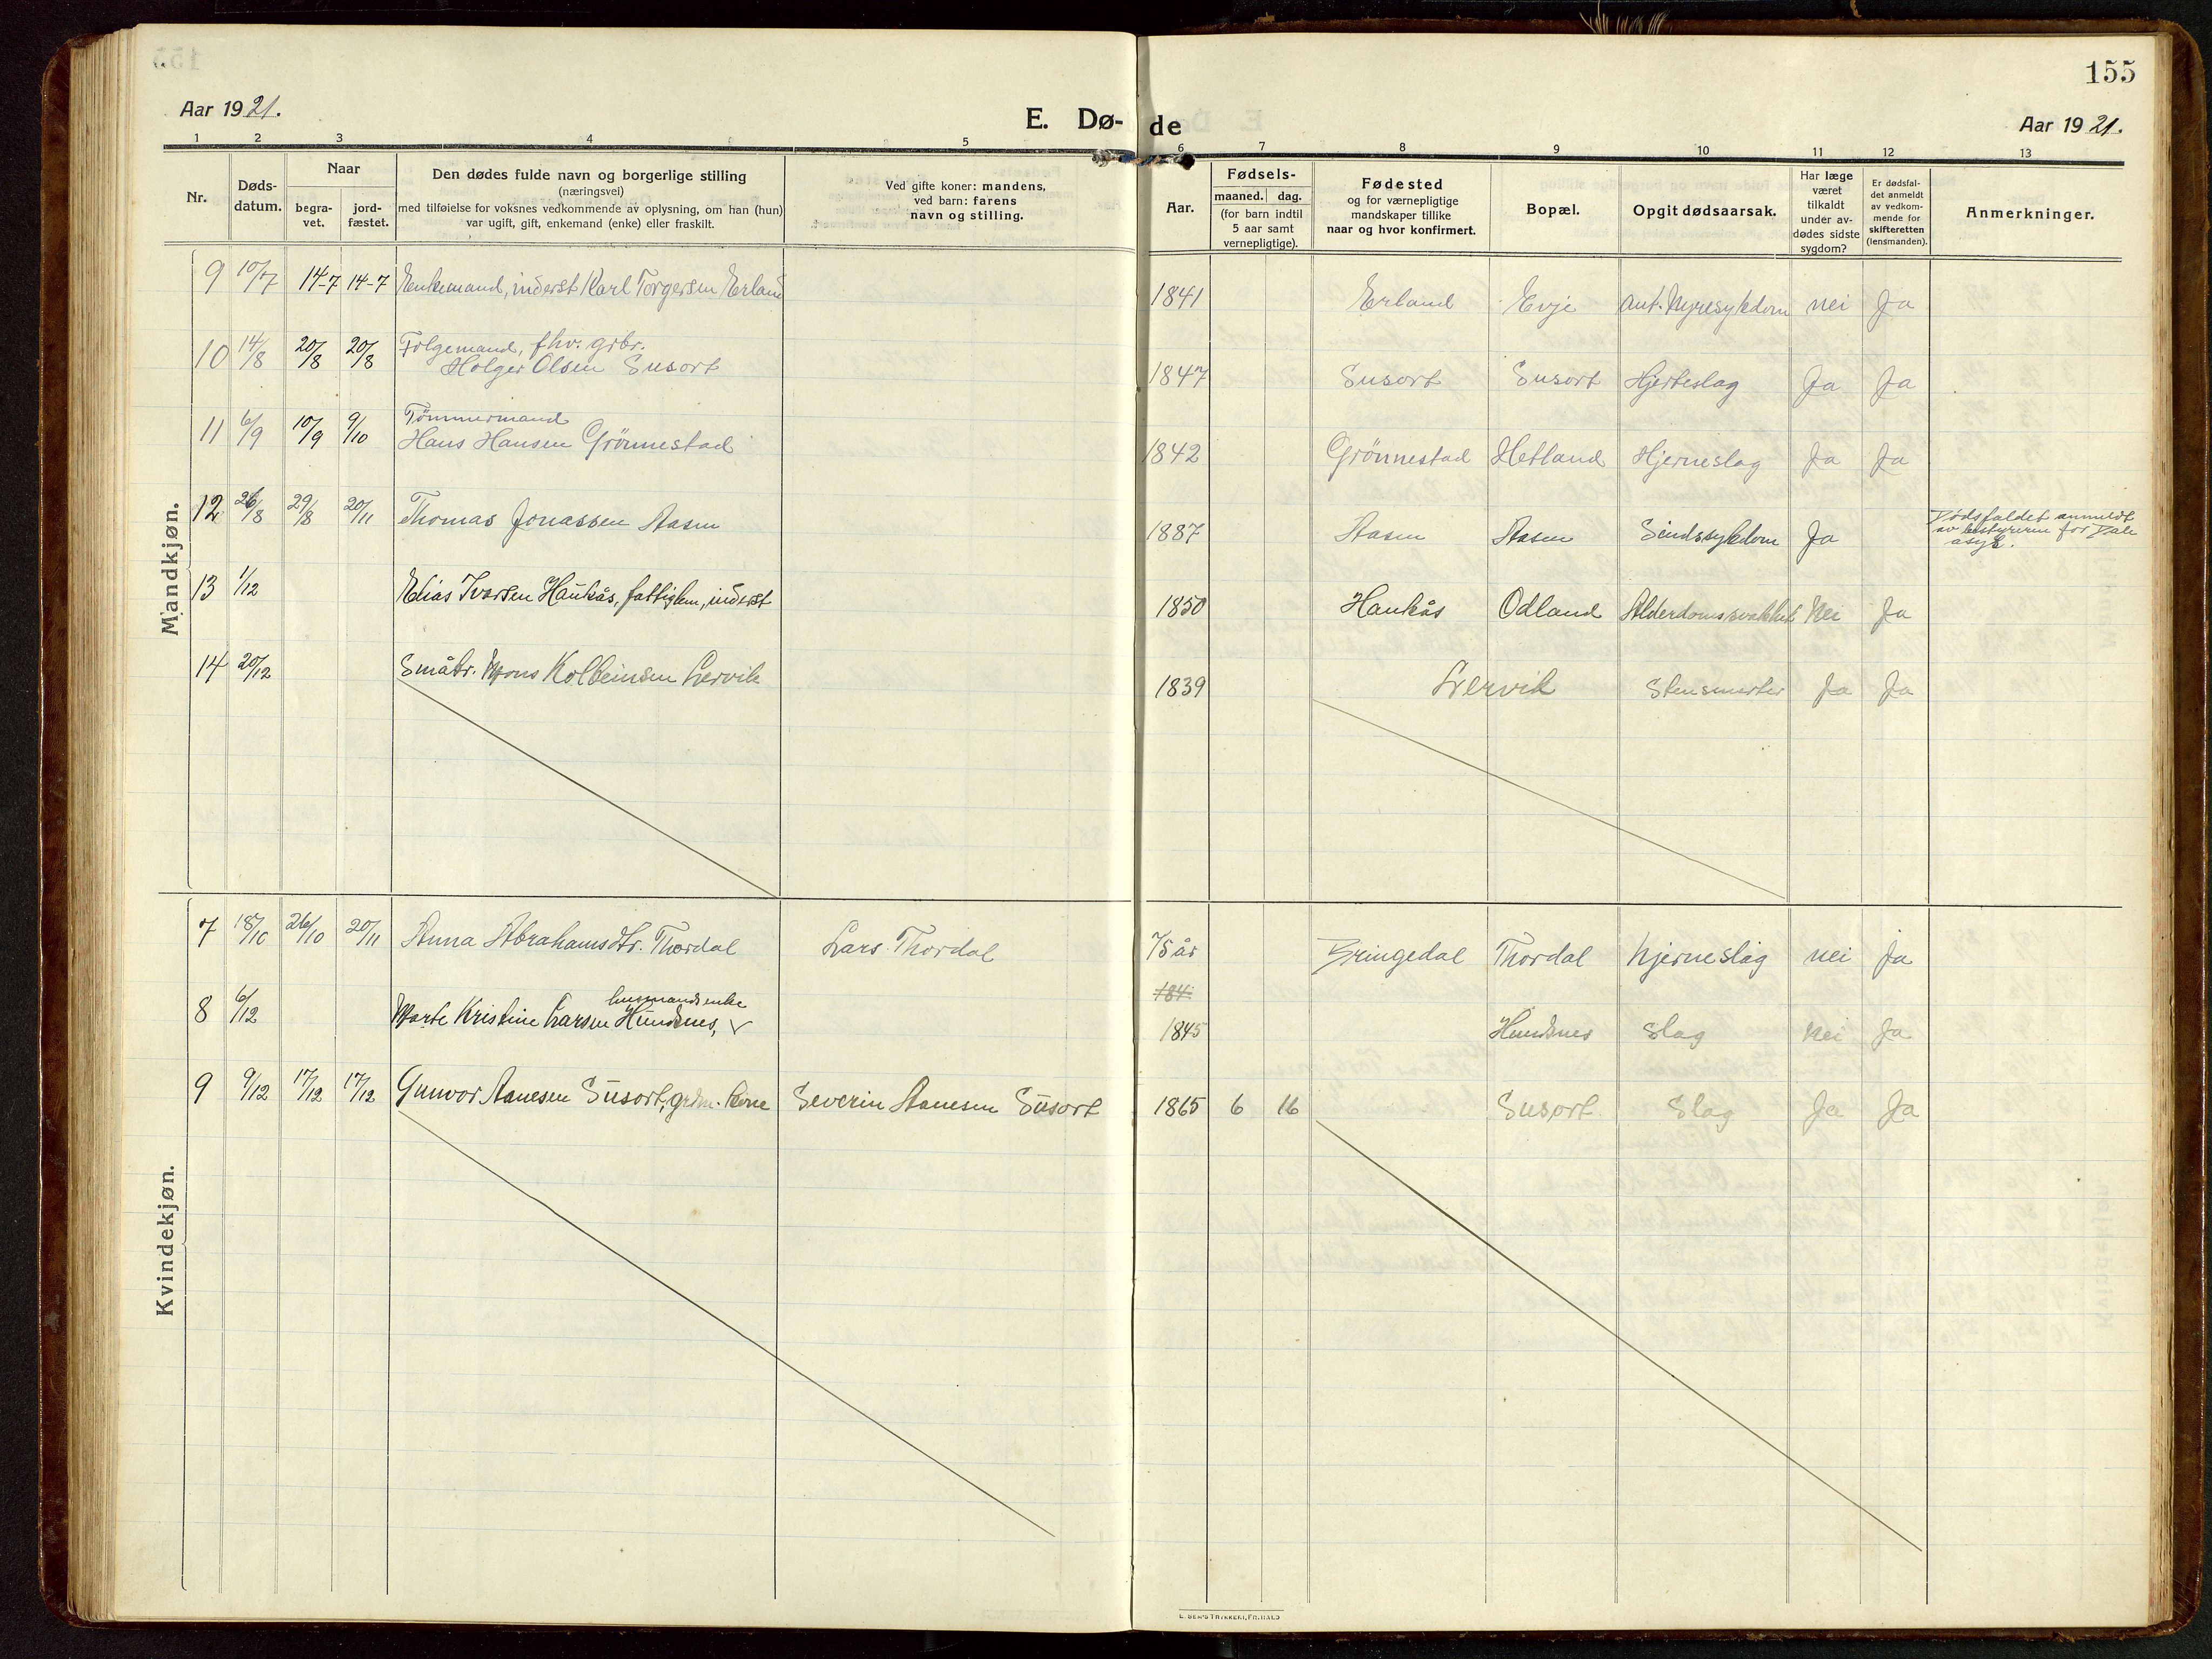 155
Aar 1921.
E. Dø- de
Aar 1921.
1 2 3 4 5 6 7 8 9 10 11 12 13
Nr.
Døds-
datum.
Naar
begra-
vet.
jord-
fæstet.
Den dødes fulde navn og borgerlige stilling
(næringsvei)
med tilføielse for voksnes vedkommende av oplysning, om han (hun)
var ugift, gift, enkemand (enke) eller fraskilt.
Ved gifte koner: mandens,
ved barn: farens
navn og stilling.
Aar.
Fødsels-
maaned. dag.
(for barn indtil
5 aar samt
vernepligtige).
Fødested
og for værnepligtige
mandskaper tillike
naar og hvor konfirmert.
Bopæl.
Opgit dødsaarsak.
Har læge
været
tilkaldt
under av-
dødes sidste
sygdom?
Er dødsfal-
det anmeldt
av vedkom-
mende for
skifteretten
(lensmanden).
Anmerkninger.
Mandkjøn.
9 10/7 14-7 14-7 Enkemand, inderst Karl Torgersen Erland 1841 Erland Evje ant. Nyresykdom nei Ja
10 14/8 20/8 20/8 Folgemand, fhv. grbr.
Holger Olsen Susort 1847 Susort Susort Hjerteslag Ja Ja
11 6/9 10/9 9/10 Tømmermand
Hans Hansen Grönnestad 1842 Grönnestad Hetland Hjerneslag Ja Ja
12 26/8 29/8 20/11 Thomas Jonassen Aasen 1887 Aasen Aasen Sindssykdom Ja Dødsfaldet anmeldt
av bestyreren for Dale
asyl.
13 1/12 Elias Ivarsen Haukås, fattiglem, inderst 1850 Haukås Odland Alderdomssvakhet Nei Ja
14 20/12 Småbr. Mons Kolbeinsen Lervik 1839 Lervik Stensmerter Ja Ja
Kvindekjøn.
7 18/10 26/10 20/11 Anna Abrahamsdtr. Thordal Lars Thordal 75 år Bringedal Thordal hjerneslag nei Ja
184
husmandsenke
8 6/12 Marte Kristine Larsen Hundsnes, 1845 Hundsnes Slag Nei Ja
9 9/12 17/12 17/12 Gunvor Aanesen Susort, grdm. kone Severin Aanesen Susort 1865 6 16 Susort Slag Ja Ja